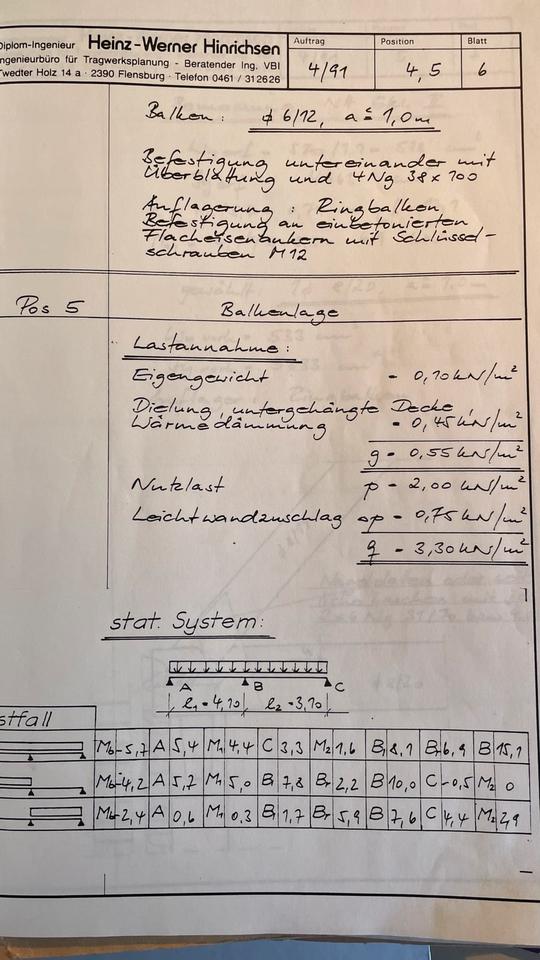 Diplom-Ingenieur Heinz-Werner Hinrichsen
Ingenieurbüro für Tragwerksplanung - Beratender Ing. VBI
Twedter Holz 14 a · 2390 Flensburg · Telefon 0461 / 31 26 26
Auftrag
4/91
Position
4, 5
Blatt
6
Balken: ϕ 6/12, a ≤ 1,0 m
Befestigung untereinander mit
Überblattung und 4 Ng 38 x 100
Auflagerung : Ringbalken
Befestigung an einbetonierten
Flacheisenankern mit Schlüssel-
schrauben M12
Pos 5 Balkenlage
Lastannahme:
Eigengewicht - 0,10 kN/m²
Dielung, untergehängte Decke,
Wärmedämmung - 0,45 kN/m²
g - 0,55 kN/m²
Nutzlast p - 2,00 kN/m²
Leichtwandzuschlag Δp - 0,75 kN/m²
q - 3,30 kN/m²
stat. System:
A B C
l₁ = 4,10 l₂ = 3,10
stfall
Mb -5,7 A 5,4 M1 4,4 C 3,3 M2 1,6 Bl 8,1 Br 6,9 B 15,1
Mb -4,2 A 5,7 M1 5,0 Bl 7,8 Br 2,2 B 10,0 C -0,5 M2 0
Mb -2,4 A 0,6 M1 0,3 Bl 1,7 Br 5,9 B 7,6 C 4,4 M2 2,9